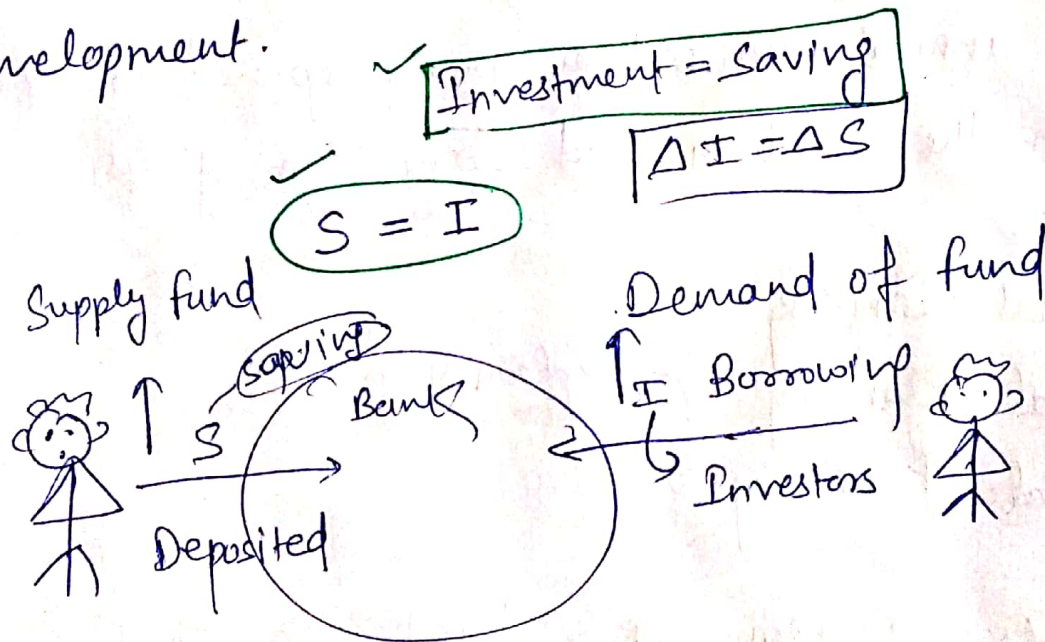 velopment.
Investment = Saving
ΔI = ΔS
S = I
Supply fund
Demand of fund
saving
Bank
I Borrowing
S
Investors
Deposited